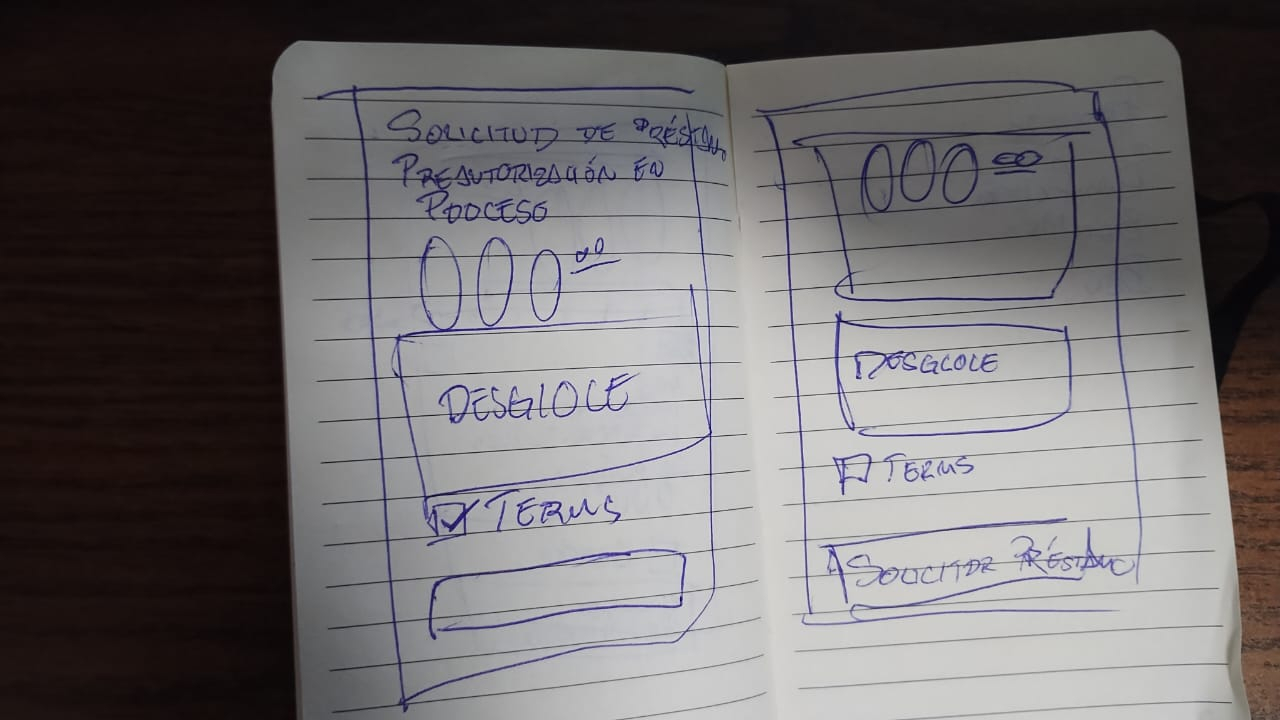 SOLICITUD DE PRÉSTAMO
PREAUTORIZACIÓN EN
PROCESO
000.00
DESGLOCE
TERMS
000.00
DESGLOCE
TERMS
SOLICITAR PRÉSTAMO